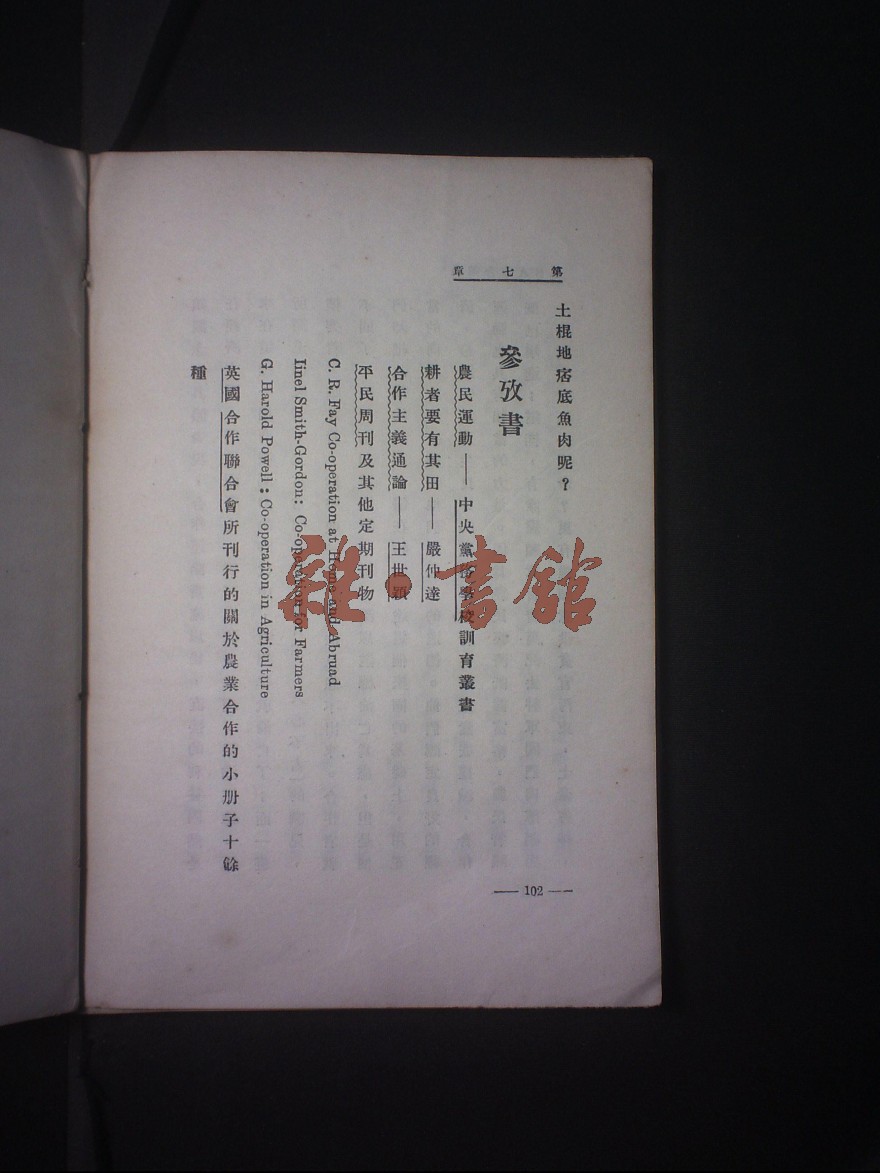 第七章
土棍地痞底魚肉呢？
參攷書
農民運動——中央黨務學校訓育叢書
耕者要有其田——嚴仲達
合作主義通論——王世穎
平民周刊及其他定期刊物
C. R. Fay Co-operation at Home and Abruad
Iinel Smith-Gordon: Co-operation for Farmers
G. Harold Powell : Co-operation in Agriculture
英國合作聯合會所刊行的關於農業合作的小册子十餘
種
— 102 —
雜·書館